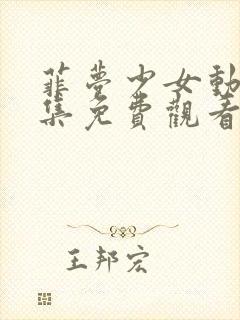 韮夢少女動
集免費觀看
王邦宏